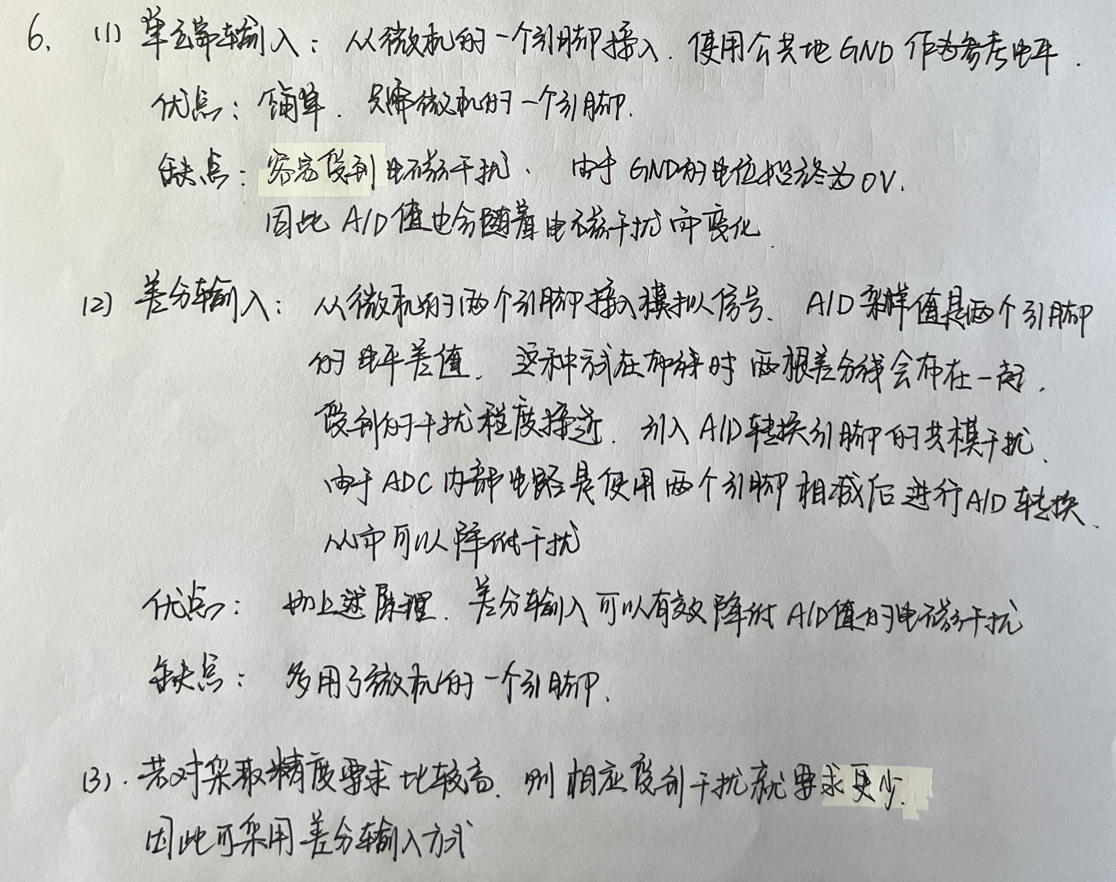 6. (1) 单端输入：从微机的一个引脚接入，使用公共地GND作为参考电平.
优点：简单，只降微机的一个引脚.
缺点：容易受到电磁干扰、由于GND的电位始终为0V.
因此A/D值也会随着电磁干扰而变化.
(2) 差分输入：从微机的两个引脚接入模拟信号、A/D采样值是两个引脚
的电平差值. 这种方式在布线时两根差分线会布在一起,
受到的干扰程度接近. 引入A/D转换引脚的共模干扰、
由于ADC内部电路是使用两个引脚相减后进行A/D转换、
从而可以降低干扰
优点：如上述原理. 差分输入可以有效降低A/D值的电磁干扰
缺点：多用了微机的一个引脚.
(3). 若对采取精度要求比较高. 则相应受到干扰就要求更少.
因此可采用差分输入方式